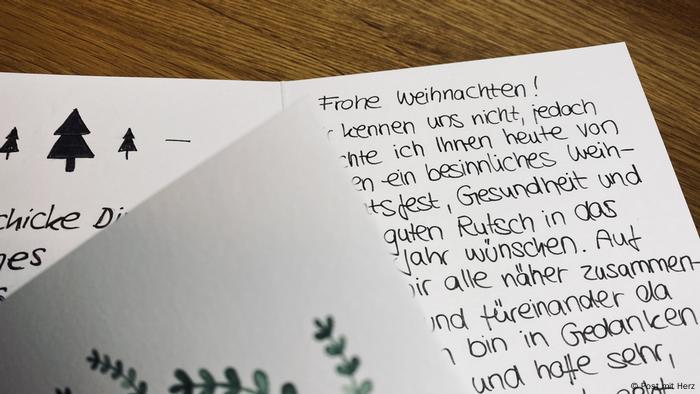 chicke
es
Frohe Weihnachten!
kennen uns nicht, jedoch
chte ich Ihnen heute von
en ein besinnliches Weih-
tsfest, Gesundheit und
guten Rutsch in das
Jahr wünschen. Auf
ir alle näher zusammen-
und füreinander da
bin in Gedanken
und hoffe sehr,
© Post mit Herz